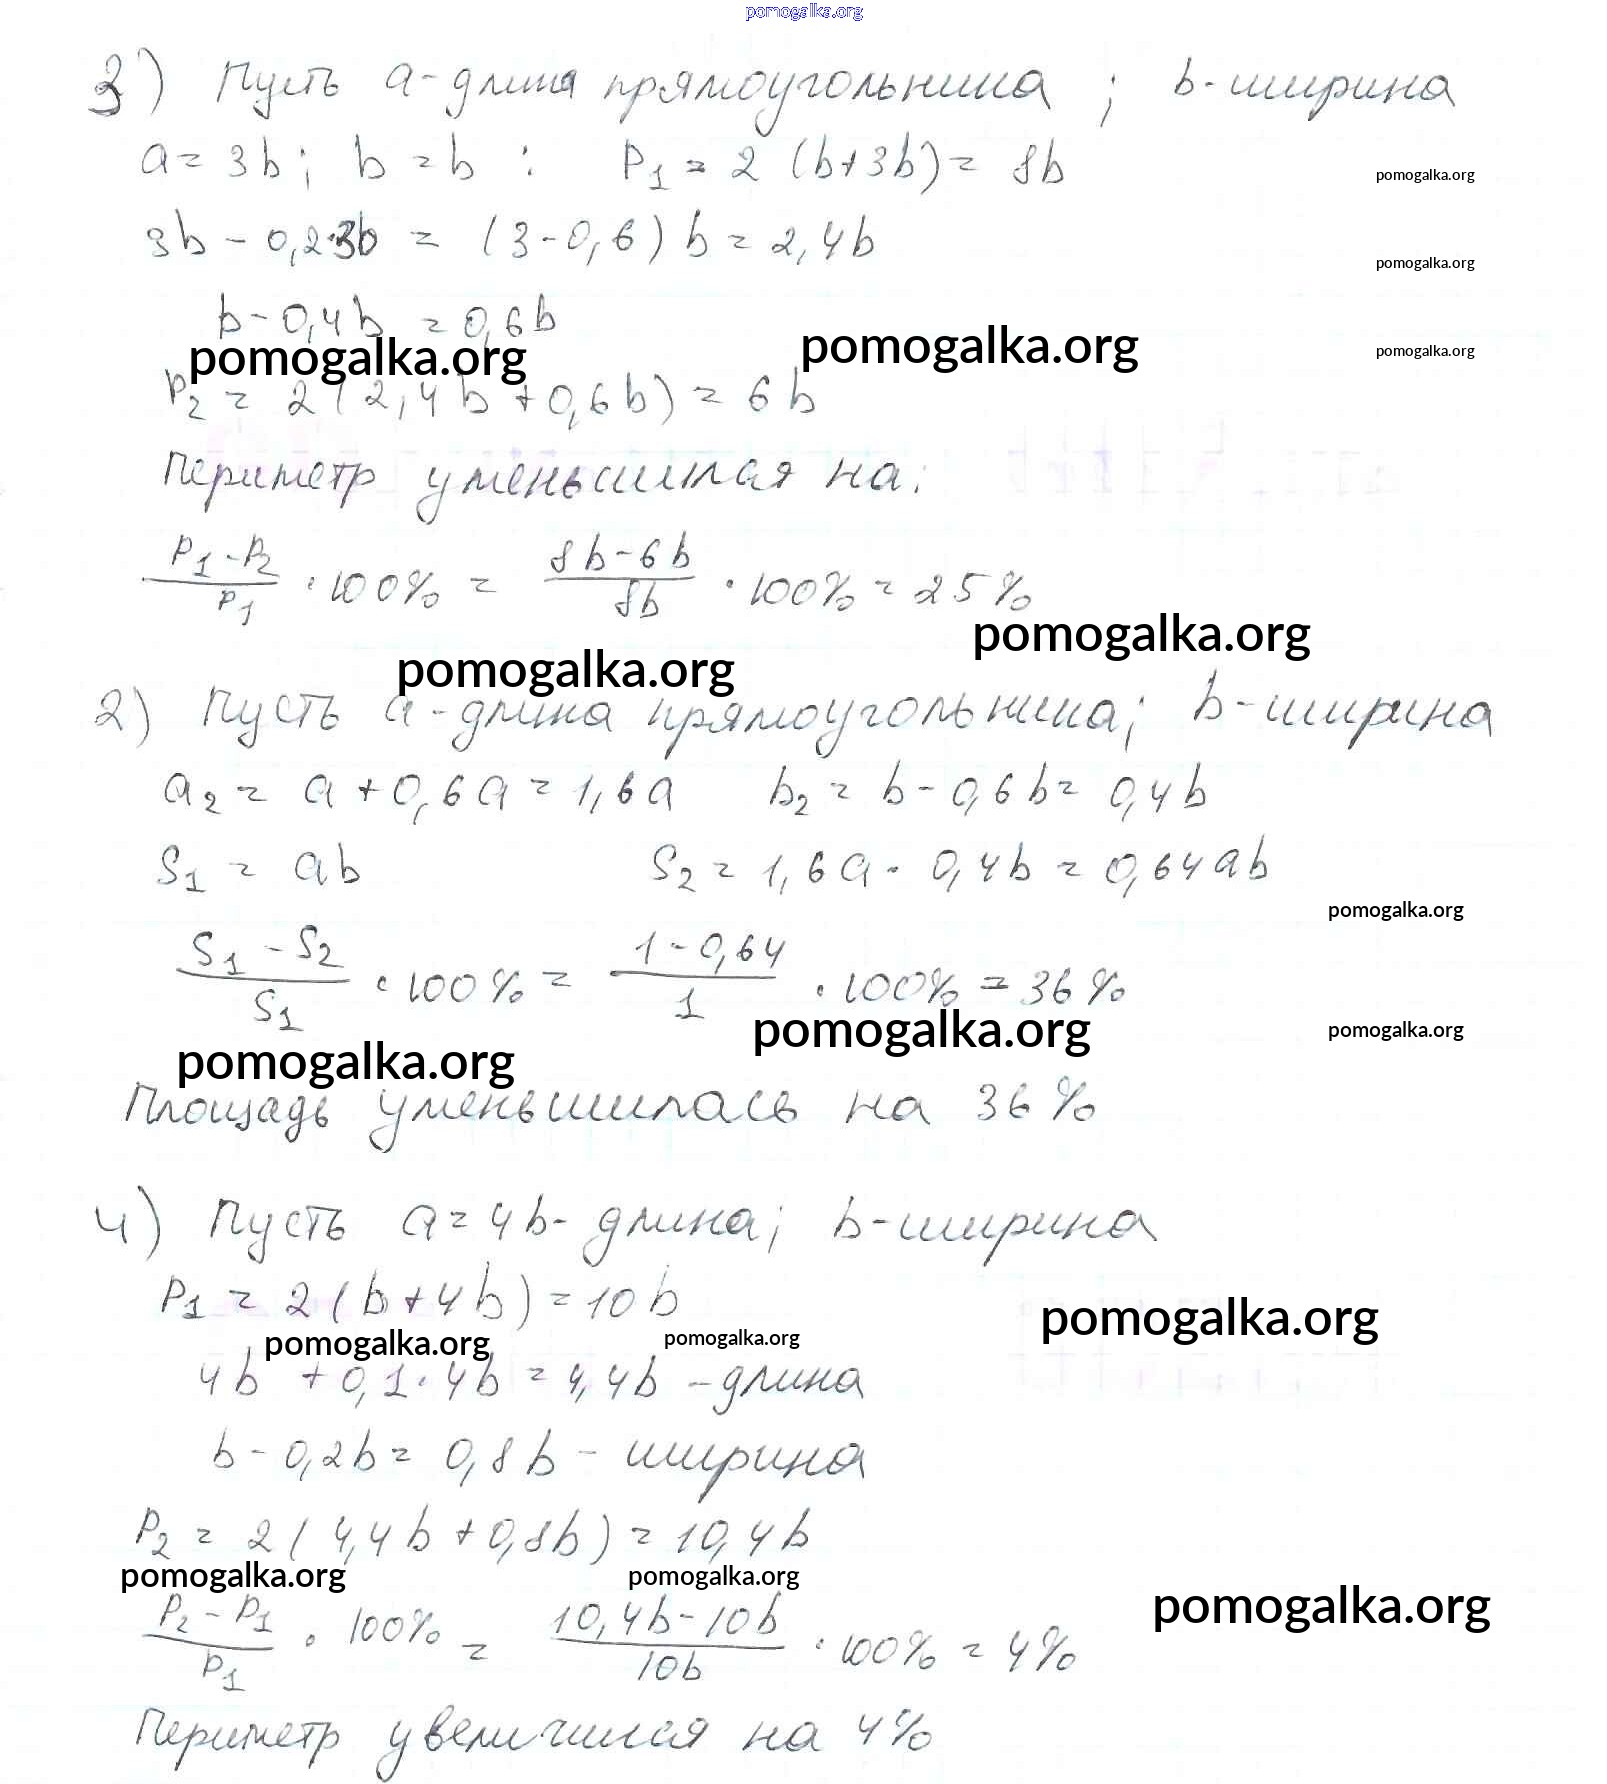 pomogalka.org
3) Пусть a - длина прямоугольника ; b - ширина
a = 3b ; b = b : P₁ = 2 (b+3b) = 8b
pomogalka.org
3b - 0,2·3b = (3-0,6) b = 2,4b
pomogalka.org
b - 0,4b = 0,6b
pomogalka.org pomogalka.org pomogalka.org
P₂ = 2(2,4b + 0,6b) = 6b
Периметр уменьшился на:
(P₁ - P₂)/P₁ · 100% = (8b - 6b)/8b · 100% = 25%
pomogalka.org
pomogalka.org
2) Пусть a - длина прямоугольника; b - ширина
a₂ = a + 0,6a = 1,6a b₂ = b - 0,6b = 0,4b
S₁ = ab S₂ = 1,6a · 0,4b = 0,64ab
pomogalka.org
(S₁ - S₂)/S₁ · 100% = (1 - 0,64)/1 · 100% = 36%
pomogalka.org pomogalka.org
pomogalka.org
Площадь уменьшилась на 36%
4) Пусть a = 4b - длина; b - ширина
P₁ = 2(b + 4b) = 10b
pomogalka.org
pomogalka.org pomogalka.org
4b + 0,1·4b = 4,4b - длина
b - 0,2b = 0,8b - ширина
P₂ = 2(4,4b + 0,8b) = 10,4b
pomogalka.org pomogalka.org
pomogalka.org
(P₂ - P₁)/P₁ · 100% = (10,4b - 10b)/10b · 100% = 4%
Периметр увеличился на 4%